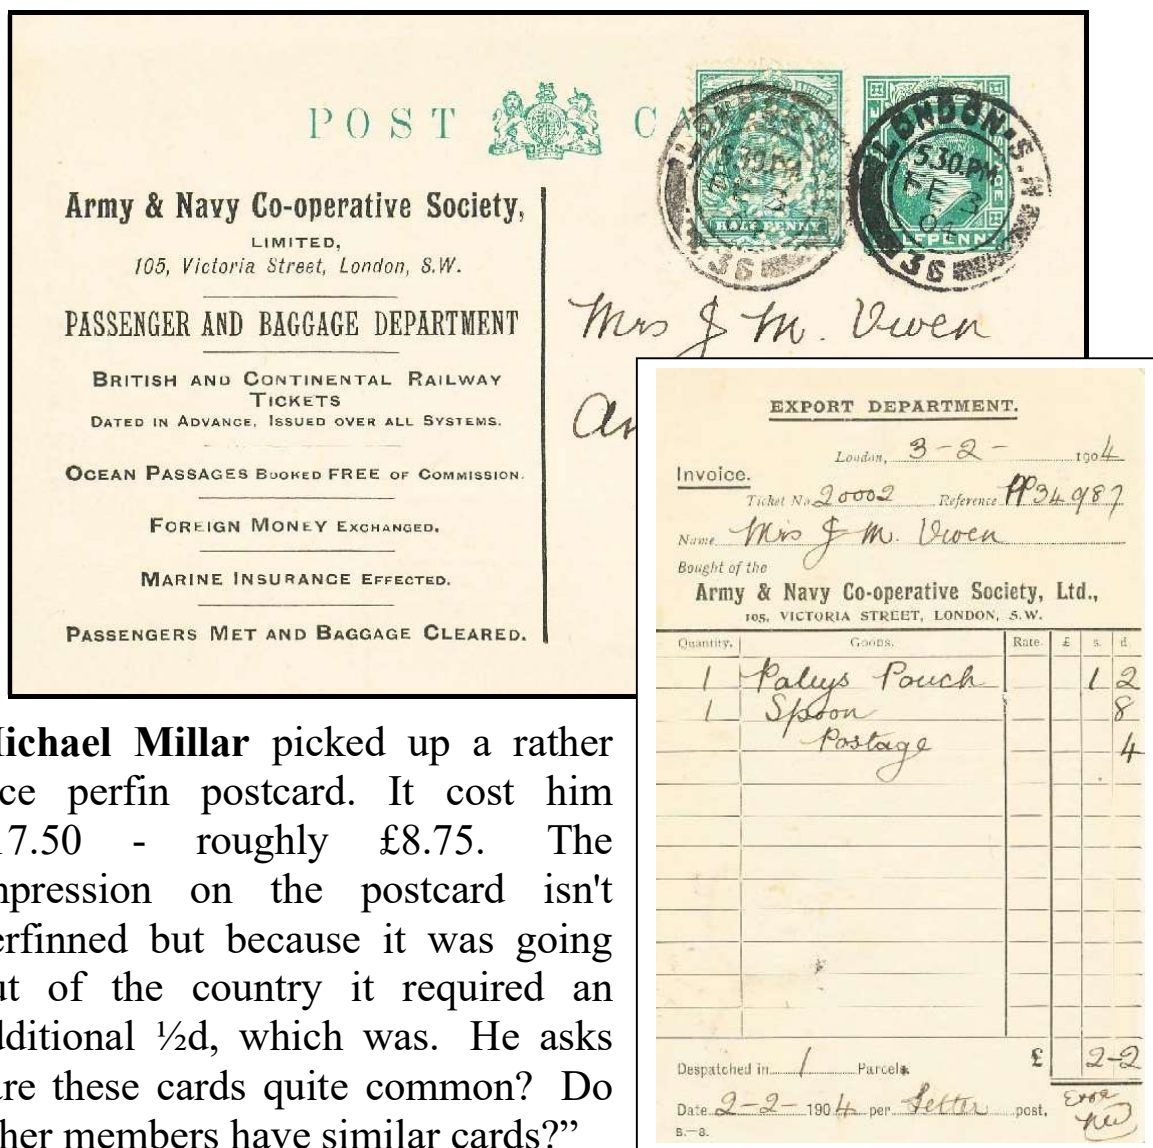 POST CA
HALFPENNY
LONDON.S.W
5.30.PM
FE 3
04
36
Army & Navy Co-operative Society,
LIMITED,
105, Victoria Street, London, S.W.
PASSENGER AND BAGGAGE DEPARTMENT
BRITISH AND CONTINENTAL RAILWAY
TICKETS
DATED IN ADVANCE, ISSUED OVER ALL SYSTEMS.
OCEAN PASSAGES BOOKED FREE OF COMMISSION.
FOREIGN MONEY EXCHANGED.
MARINE INSURANCE EFFECTED.
PASSENGERS MET AND BAGGAGE CLEARED.
Mrs J M.
EXPORT DEPARTMENT.
London, 3-2- 1904
Invoice.
Ticket No. 20002 Reference PP34987
Name Mrs J M.
Bought of the
Army & Navy Co-operative Society, Ltd.,
105, VICTORIA STREET, LONDON, S.W.
Quantity. Goods. Rate. £ s. d.
1 Pouch 1 2
1 Spoon 8
Postage 4
Despatched in 1 Parcels. £ 2-2
Date 2-2- 1904 per Letter post.
S.—8.
ichael Millar picked up a rather
ce perfin postcard. It cost him
17.50 - roughly £8.75. The
mpression on the postcard isn't
erfinned but because it was going
ut of the country it required an
dditional ½d, which was. He asks
are these cards quite common? Do
her members have similar cards?”